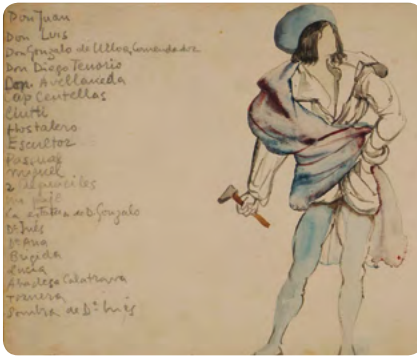 Don Juan
Don Luis
Don Gonzalo de Ulloa, Comendador
Don Diego Tenorio
Don Avellaneda
Cap Centellas
Ciutti
Hostalero
Escultor
Pascual
Miguel
2 alguaciles
Un paje
La estatua de D. Gonzalo
Dª Inés
Dª Ana
Brígida
Lucía
Abadesa Calatrava
Tornera
Sombra de Dª Inés